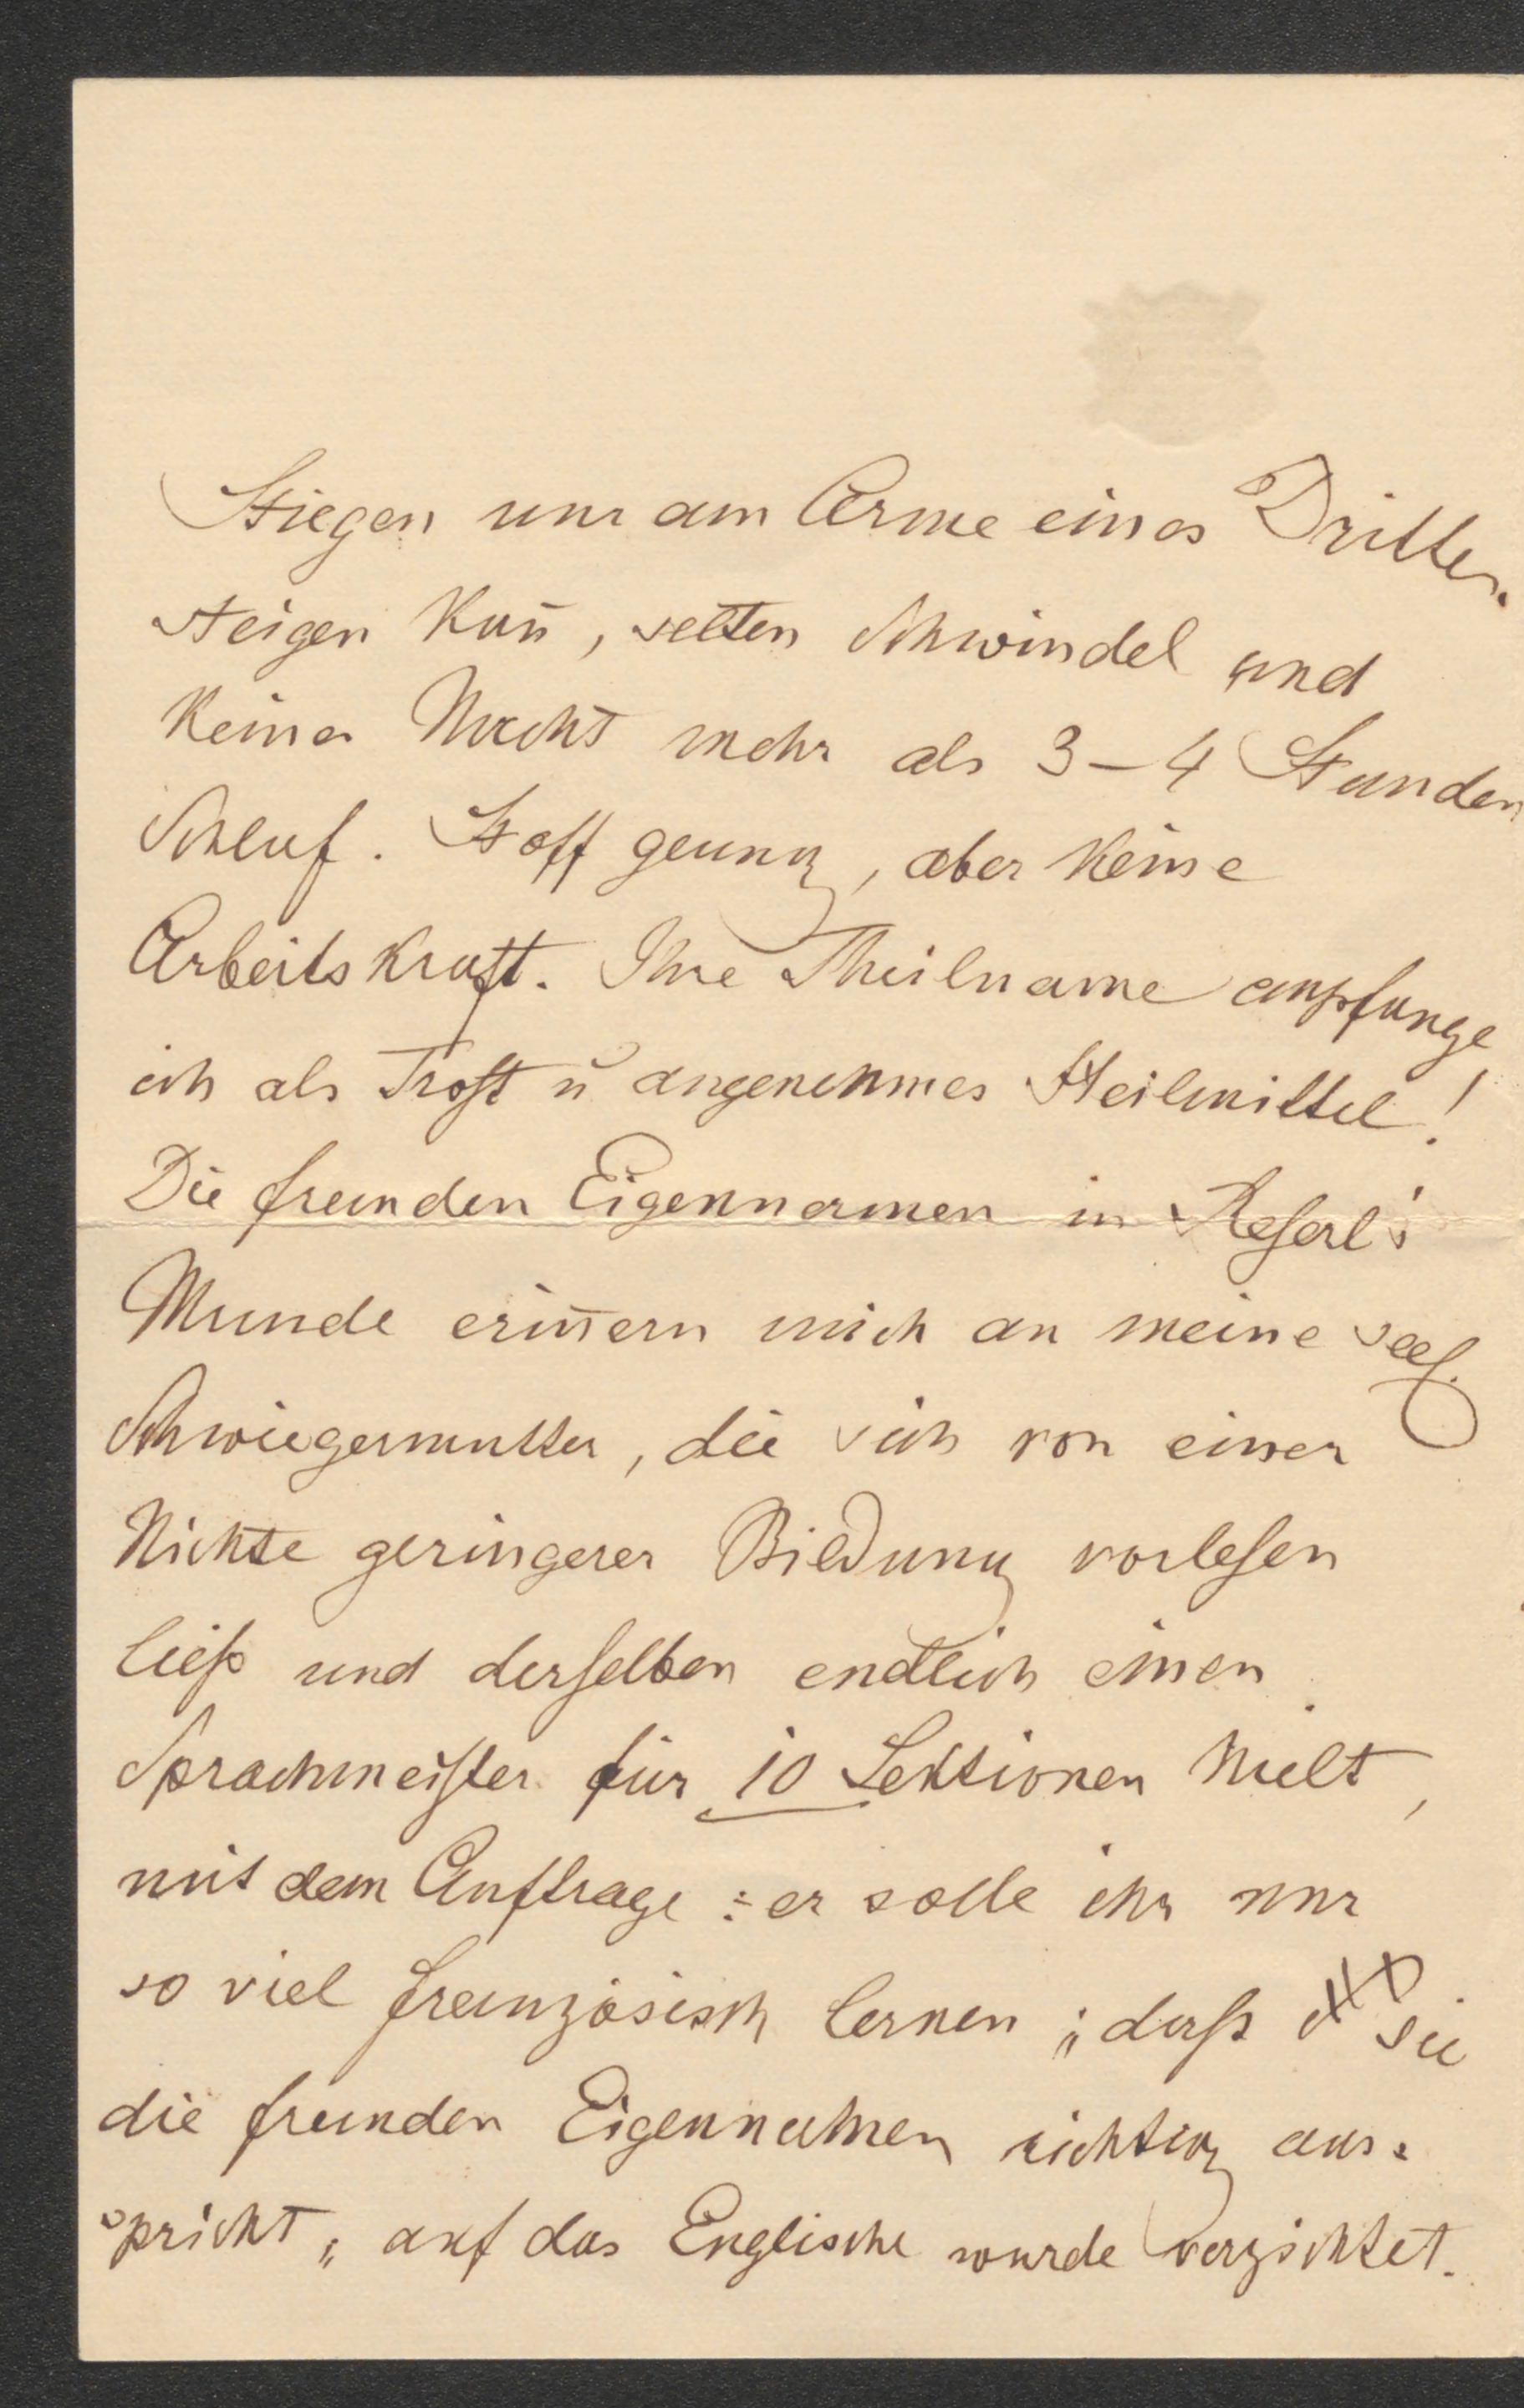 Stiegen nur am Arme eines Dritten
steigen kan̄, selten Schwindel und
keine Nacht mehr als 3–4 Stunden
Schlaf. Stoff genug, aber keine
Arbeitskraft. Ihre Theilname empfange
ich als Trost u angenehmes Heilmittel!
Die fremden Eigennamen in Reserl's
Munde erin̄ern mich an meine seel.
Schwiegermutter, die sich von einer
Nichte geringerer Bildung vorlesen
ließ und derselben endlich einen
Sprachmeister für 10 Lektionen hielt,
mit dem Auftrage: er solle ihr nur
so viel französisch lernen; daß sie
die fremden Eigennahmen richtig aus-
spricht, auf das Englische wurde verzichtet.